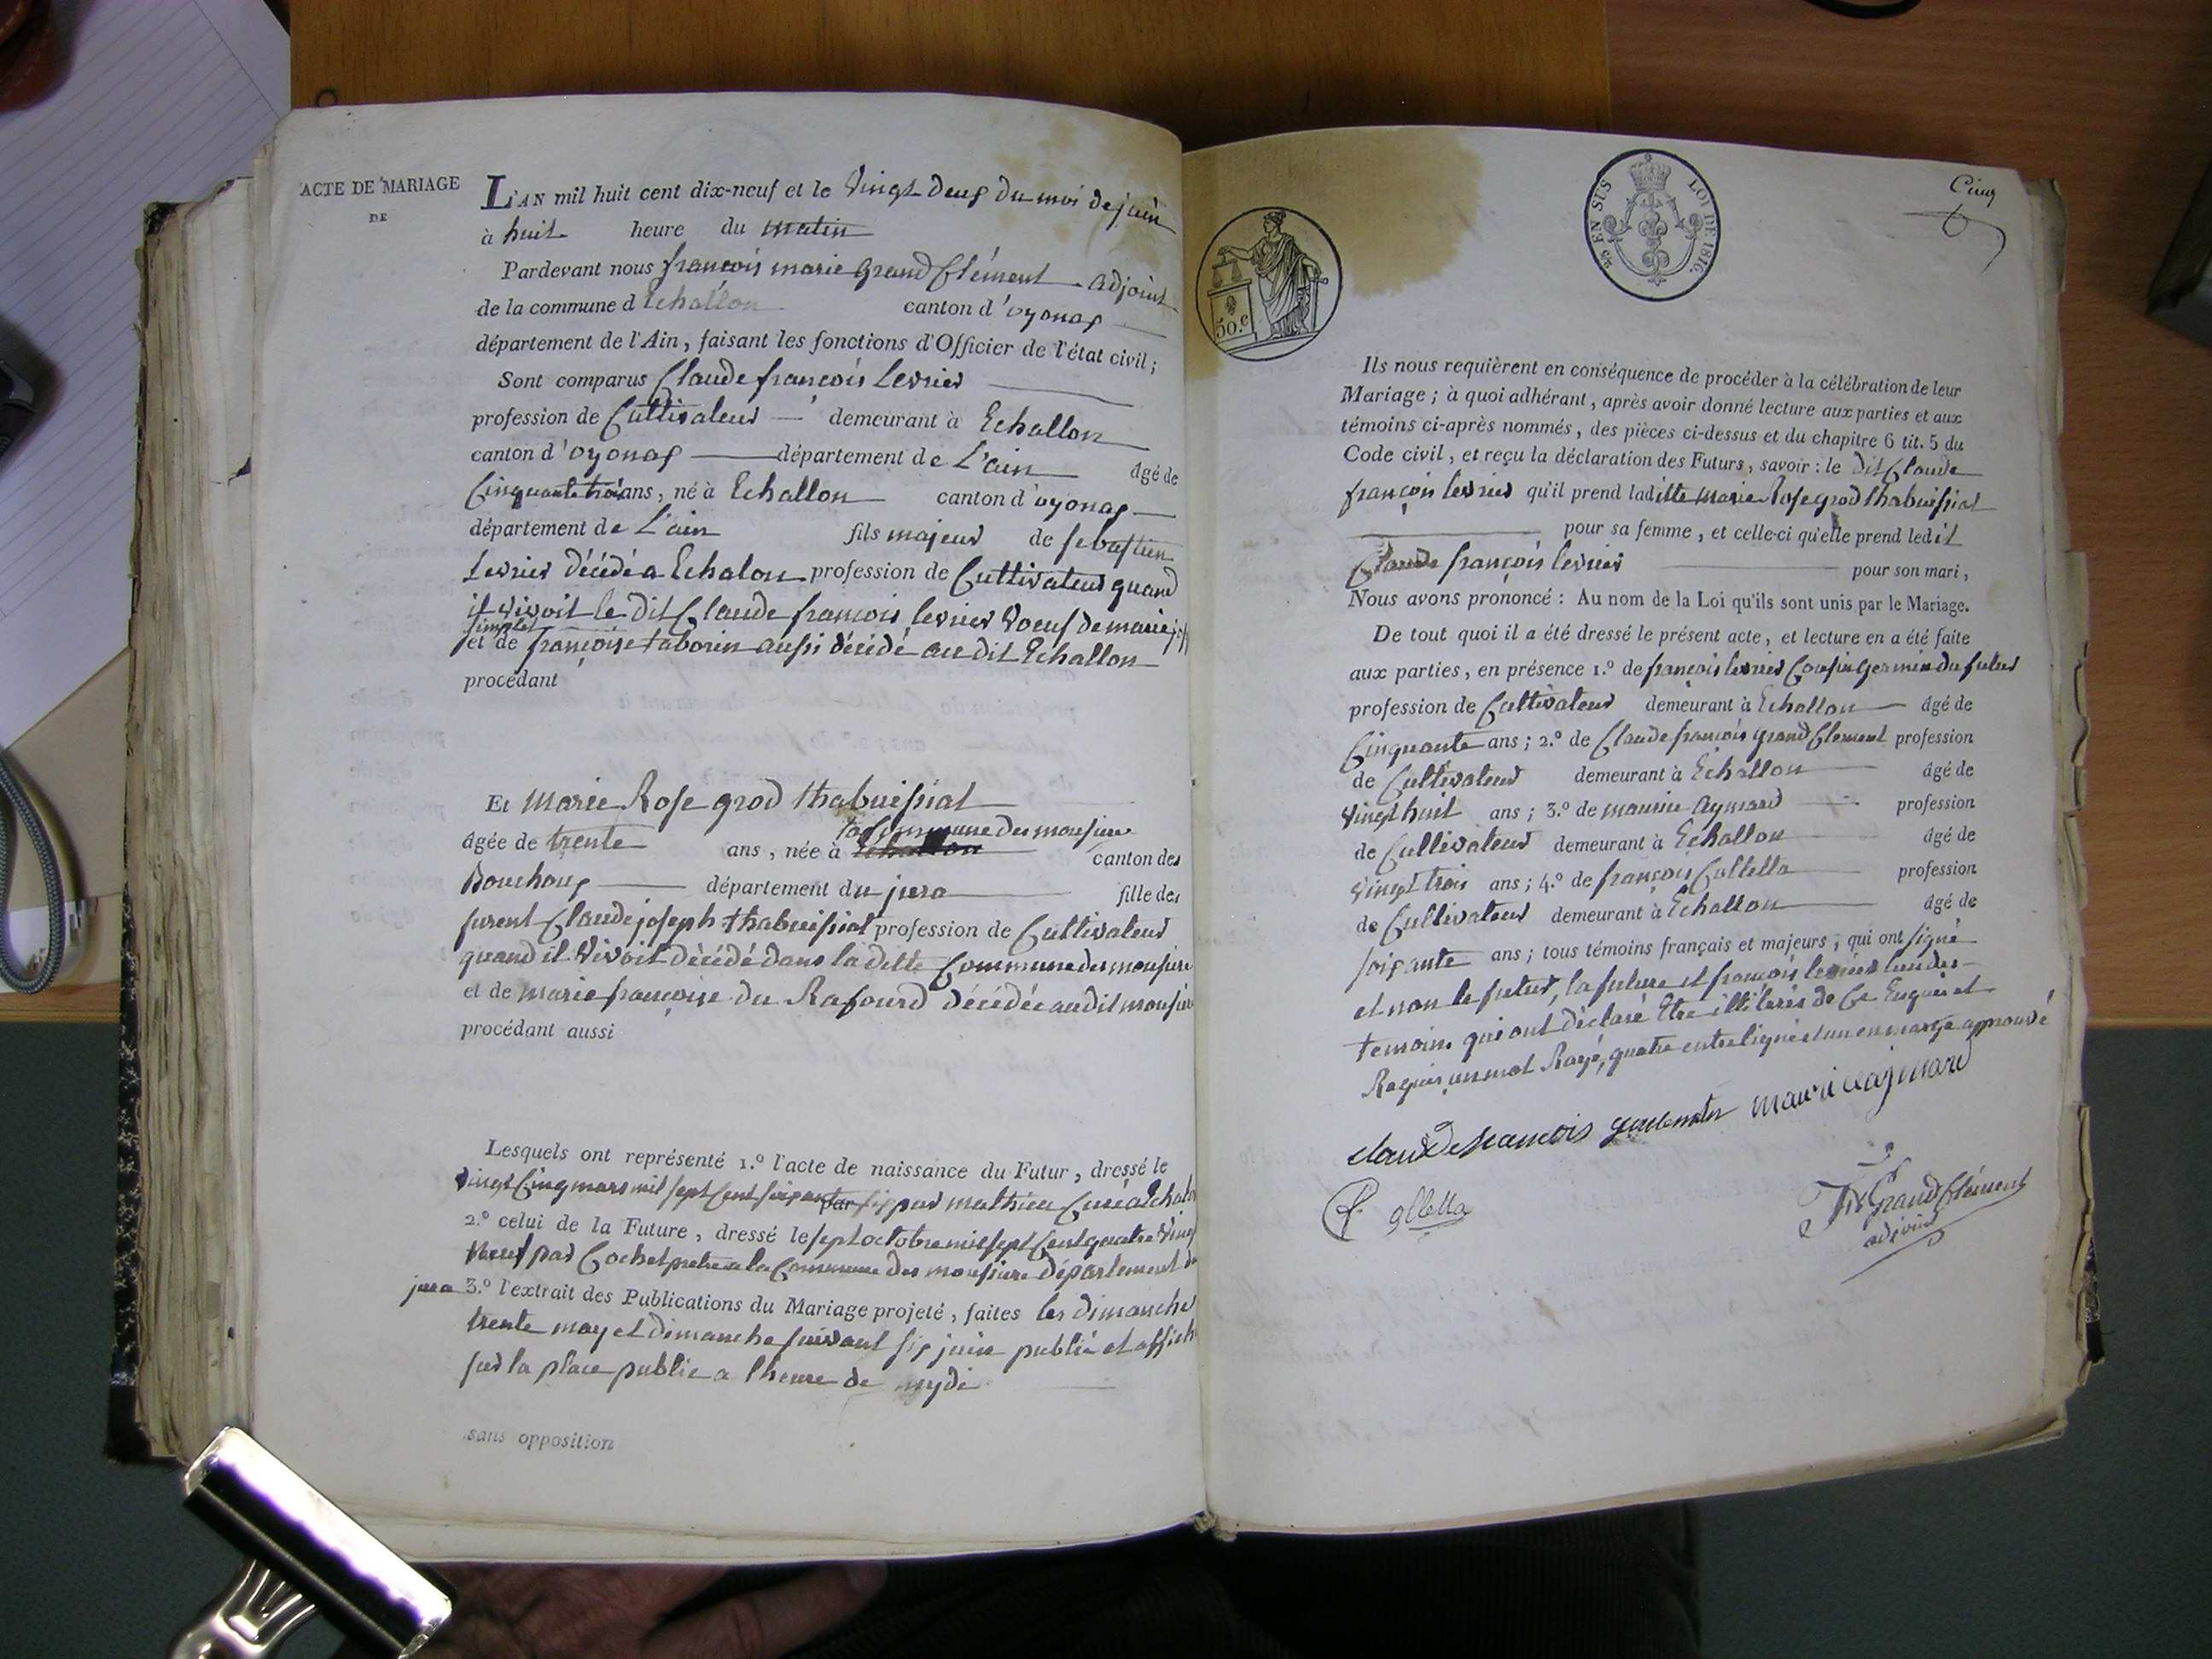 ACTE DE MARIAGE
DE
L'AN mil huit cent dix-neuf et le vingt deux du moi de juin
à huit heure du matin
Pardevant nous françois marie Grand Clément adjoint
de la commune d Echallon canton d'oyonax
département de l'Ain, faisant les fonctions d'Officier de l'état civil ;
Sont comparus Claude françois Levrier
profession de Cultivateur demeurant à Echallon
canton d'oyonax département de L'ain âgé de
Cinquante trois ans, né à Echallon canton d'oyonax
département de L'ain fils majeur de sebastien
Levrier décédé a Echalon profession de Cultivateur quand
il vivoit le dit Claude françois levrier voeuf de marie
et de françoise taborin aussi décédé au dit Echallon
procédant
Et Marie Rose grod thabuissiat
la Commune des moussiere
âgée de trente ans, née à Echallon canton des
Bouchoux département du jura fille des
furent Claude joseph thabuissiat profession de Cultivateur
quand il vivoit décédé dans la ditte Commune des moussiere
et de marie françoise du Rafourd décédée audit moussiere
procédant aussi
Lesquels ont représenté 1.º l'acte de naissance du Futur, dressé le
vingt Cinq mars mil sept Cent soixante par six par mathieu Curé a Echalon
2.º celui de la Future, dressé le sept octobre mil sept Cent quatre vingt
neuf par Cochet pretre a la Commune des moussiere département du
jura 3.º l'extrait des Publications du Mariage projeté, faites les dimanche
trente may et dimanche suivant six juin publié et affiché
sur la place public a l'heure de mydi
sans opposition
Cinq
25 EN SUS LOI DE 1816.
50.c
Ils nous requièrent en conséquence de procéder à la célébration de leur
Mariage ; à quoi adhérant, après avoir donné lecture aux parties et aux
témoins ci-après nommés, des pièces ci-dessus et du chapitre 6 tit. 5 du
Code civil, et reçu la déclaration des Futurs, savoir : le dit Claude
françois levrier qu'il prend laditte marie Rose grod thabuissiat
pour sa femme, et celle-ci qu'elle prend ledit
Claude françois levrier pour son mari,
Nous avons prononcé : Au nom de la Loi qu'ils sont unis par le Mariage.
De tout quoi il a été dressé le présent acte, et lecture en a été faite
aux parties, en présence 1.º de françois levrier Cousin germin du futur
profession de Cultivateur demeurant à Echallon âgé de
Cinquante ans ; 2.º de Claude françois grand Clement profession
de Cultivateur demeurant à Echallon âgé de
vingt huit ans ; 3.º de maurice Aymard profession
de Cultivateur demeurant à Echallon âgé de
vingt trois ans ; 4.º de françois Collella profession
de Cultivateur demeurant à Echallon âgé de
soixante ans ; tous témoins français et majeurs, qui ont signé
et non le futur, la future et françois levrier lun des
temoins qui ont déclaré Etre illiterés de Ce Enquis et
Requis un mot Rayé, quatre entre ligne et un en marge approuvé
claude francois
Collella
fx GrandClément
adjoint